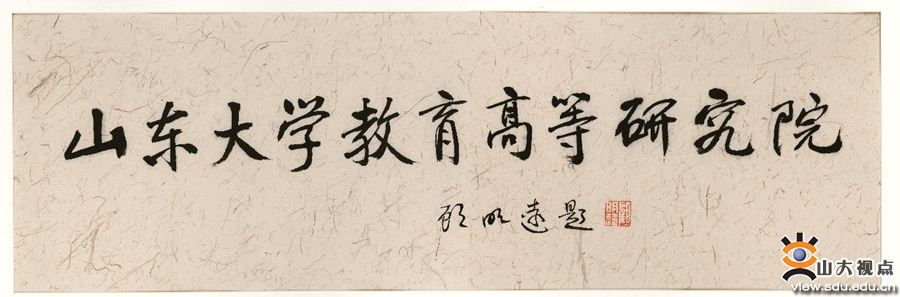 山东大学教育高等研究院
顾明远题
山大视点
view.sdu.edu.cn